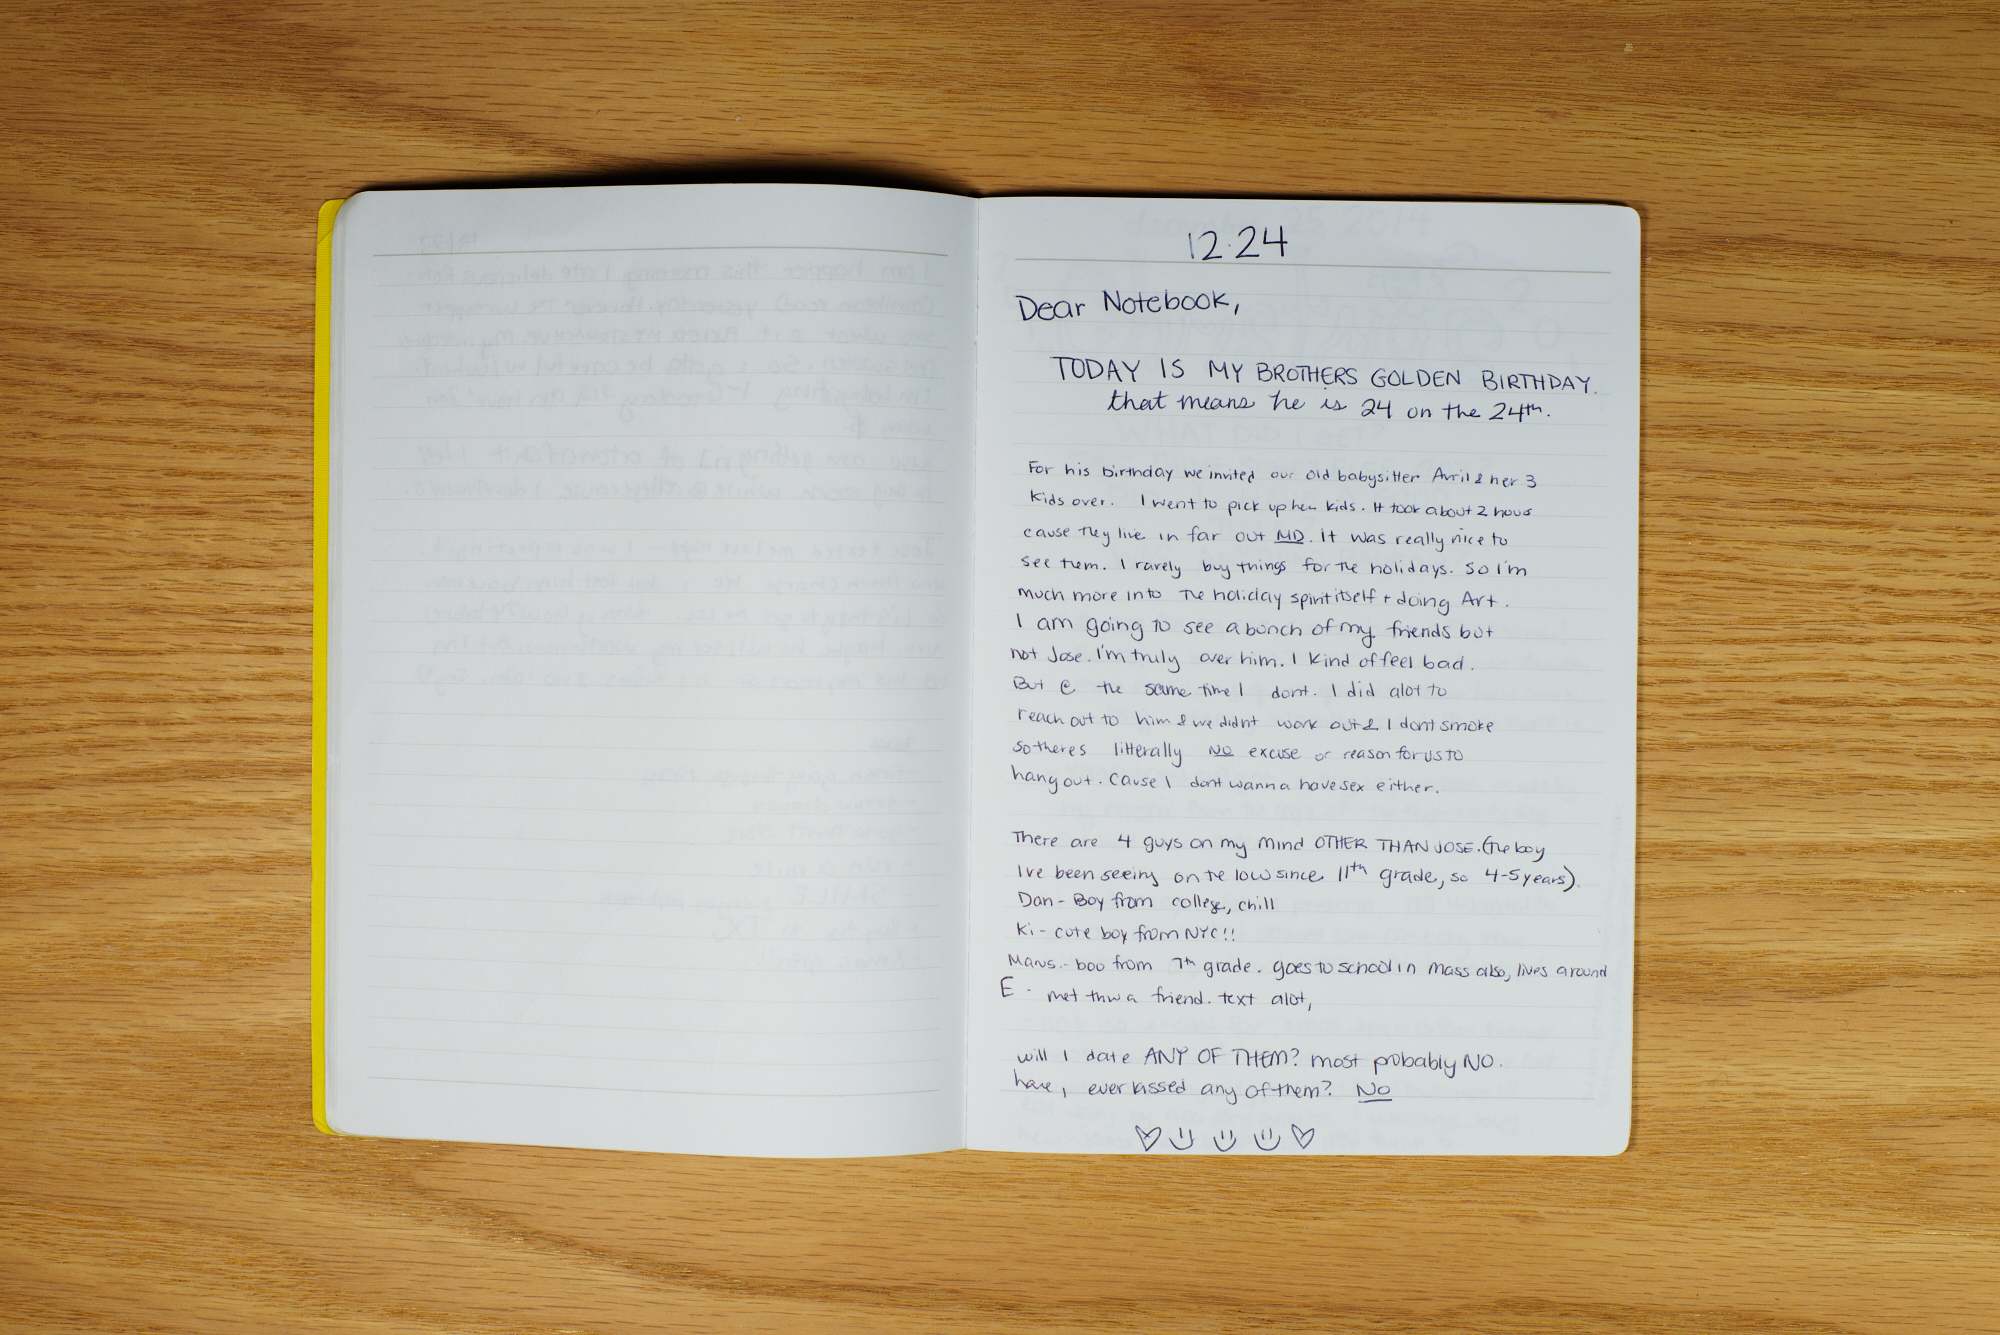 12.24
Dear Notebook,
TODAY IS MY BROTHERS GOLDEN BIRTHDAY.
that means he is 24 on the 24th.
For his birthday we invited our old babysitter Avril & her 3
kids over. I went to pick up her kids. It took about 2 hours
cause they live in far out MD. It was really nice to
see them. I rarely buy things for the holidays. so I'm
much more into the holiday spirit itself + doing Art.
I am going to see a bunch of my friends but
not Jose. I'm truly over him. I kind of feel bad.
But @ the same time I dont. I did alot to
reach out to him & we didnt work out & I dont smoke
so theres litterally NO excuse or reason for us to
hang out. Cause I dont wanna have sex either.
There are 4 guys on my mind OTHER THAN JOSE. (the boy
I've been seeing on the low since 11th grade, so 4-5 years).
Dan - Boy from college, chill
Ki - cute boy from NYC!!
- boo from 7th grade. goes to school in mass also, lives around
E - met thru a friend. text alot,
will I date ANY OF THEM? most probably NO.
have I ever kissed any of them? NO